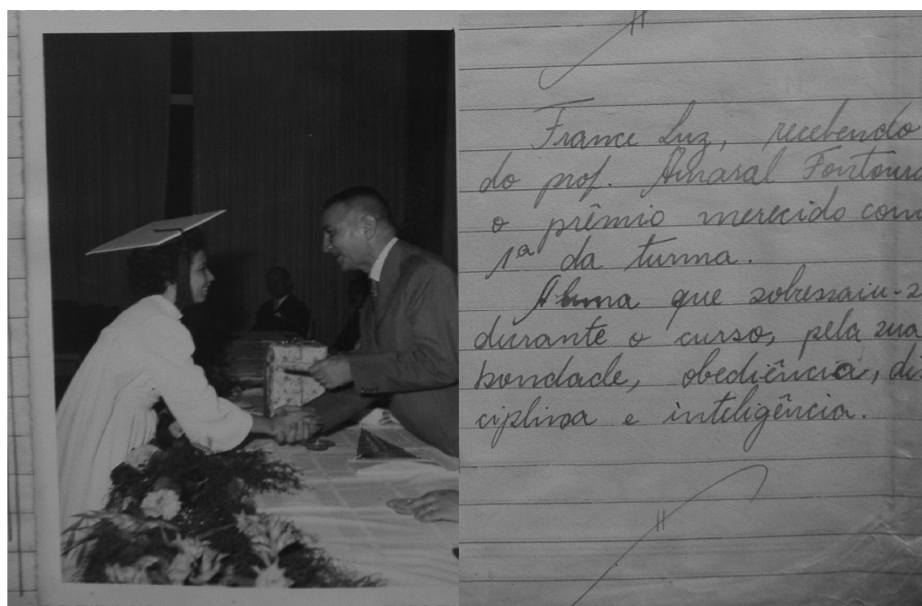 France Luz, recebendo
do prof. Amaral Fontoura
o prêmio merecido com
1ª da turma.
Aluna que sobressaiu-s
durante o curso, pela sua
bondade, obediência, dis
ciplina e inteligência.